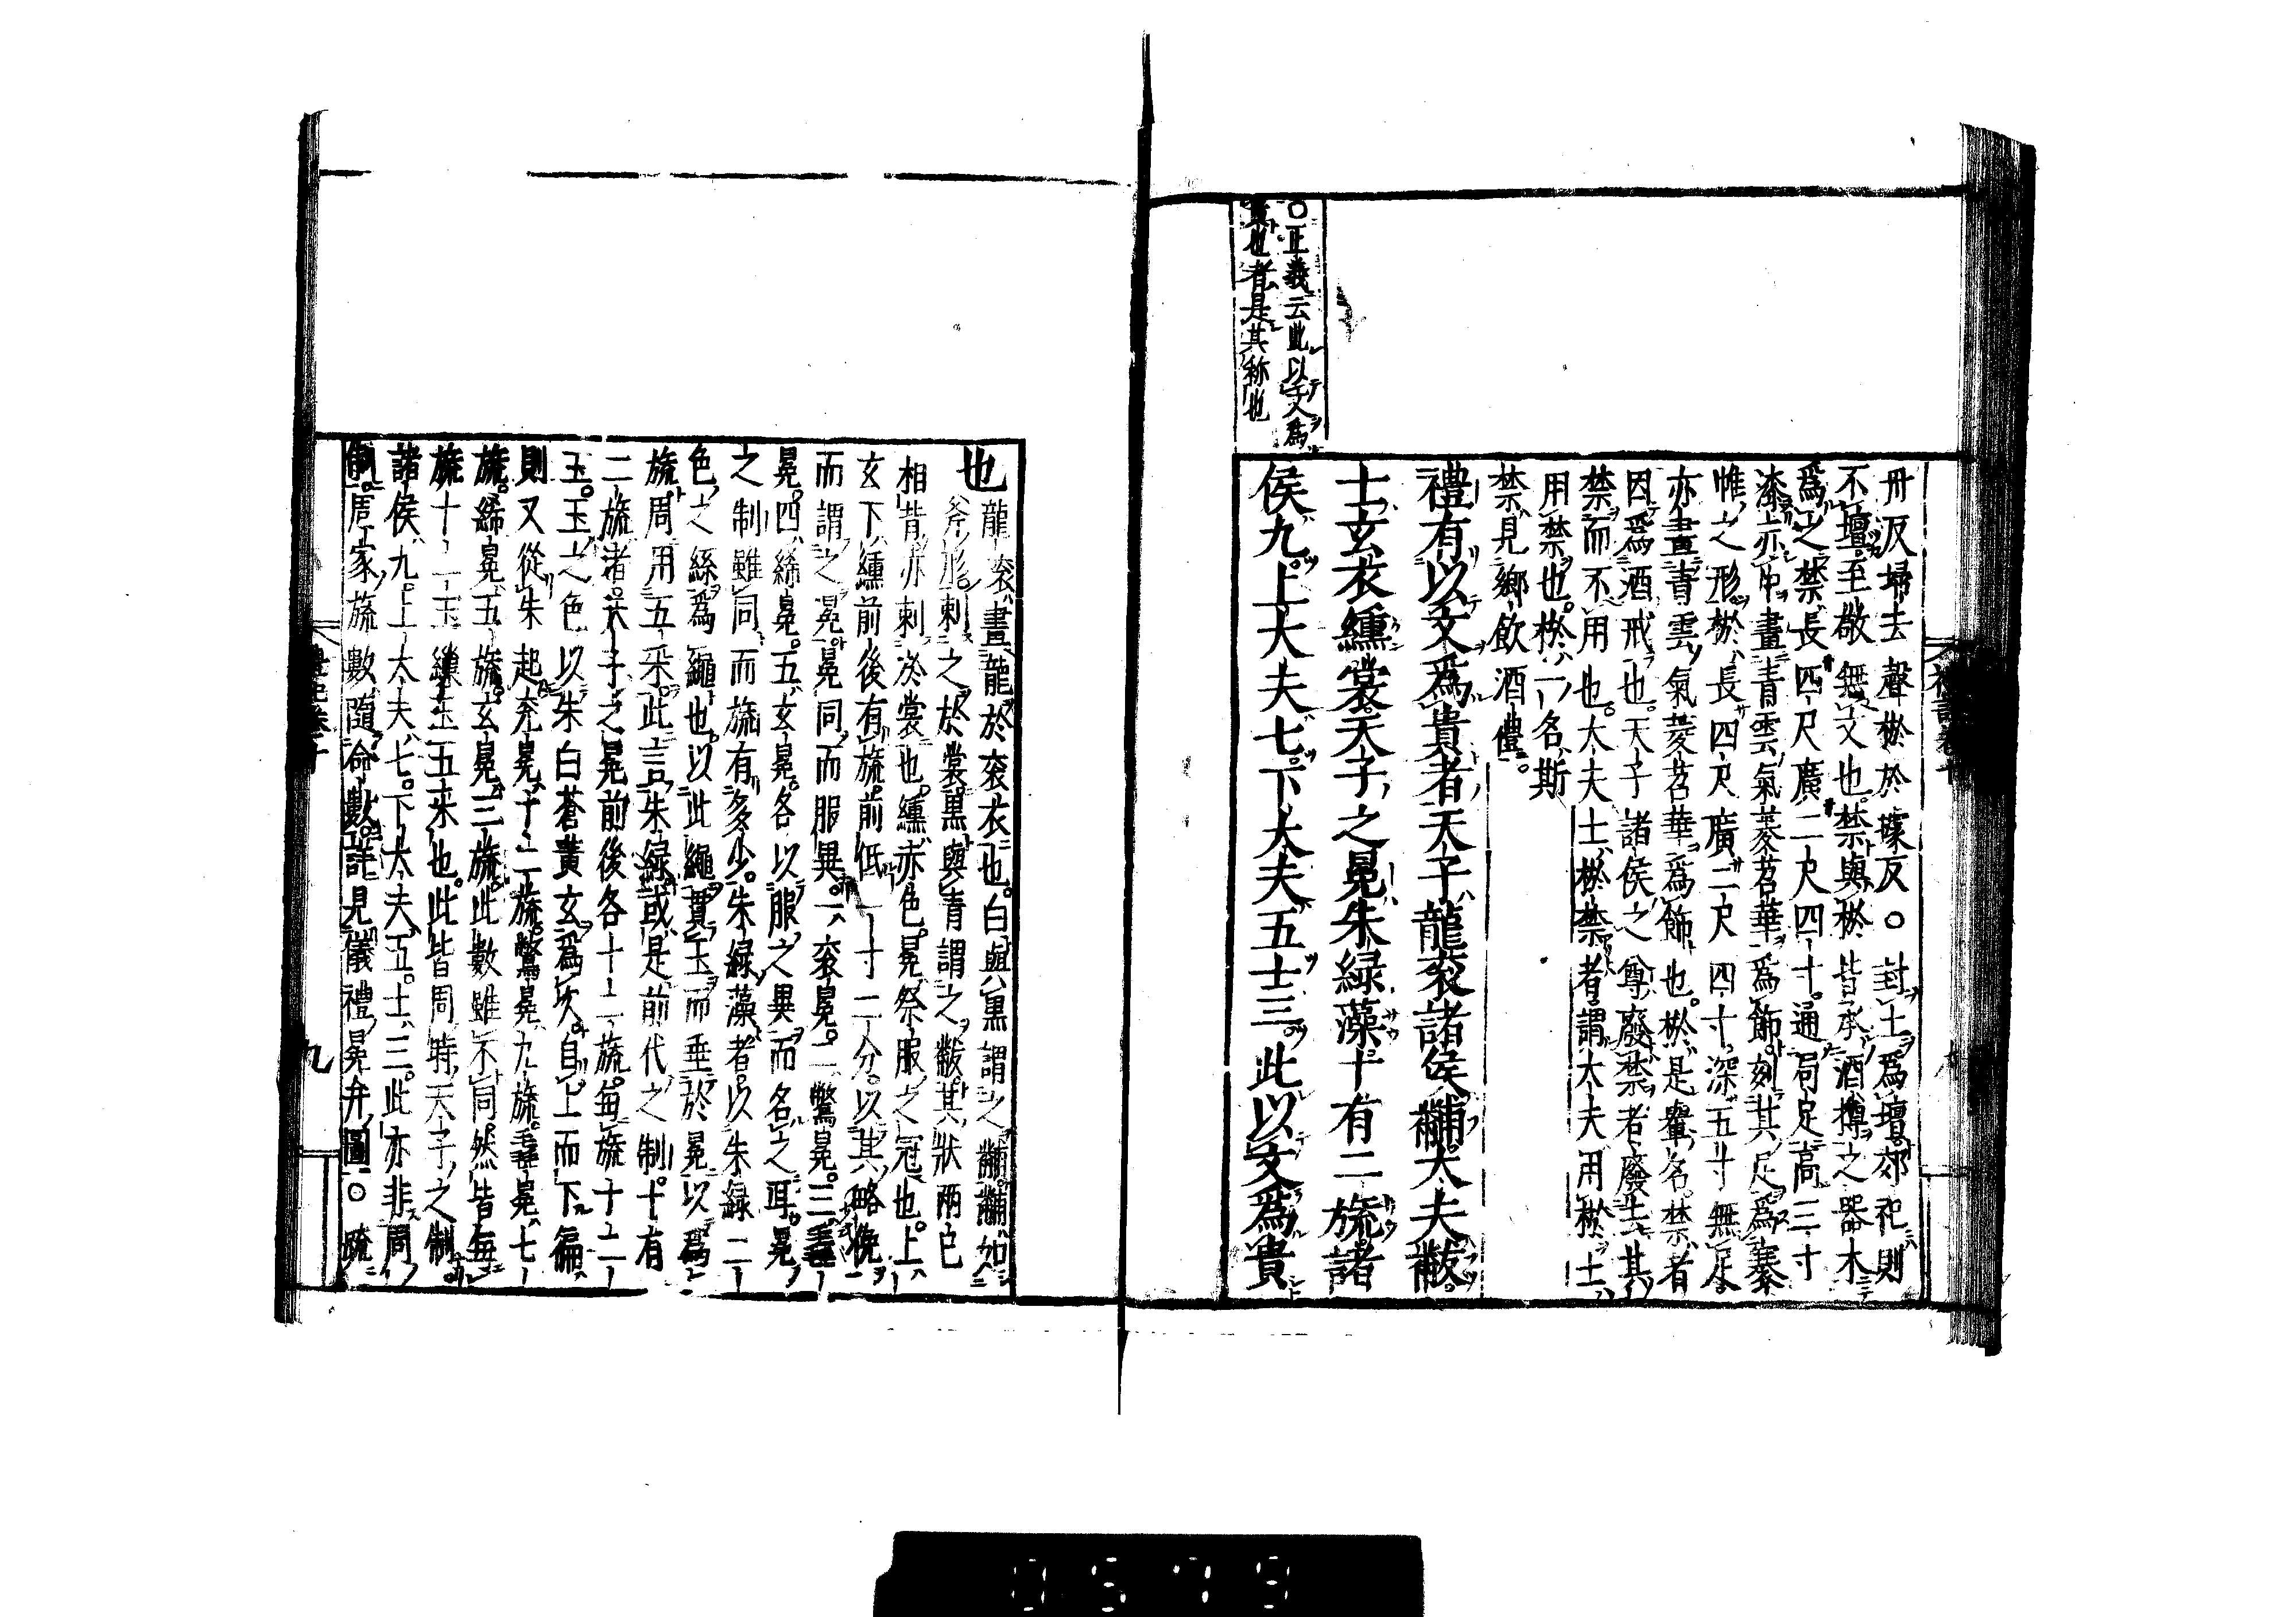 冊汳埽去聲棜於㯫反○封土爲壇郊祀則
不壇至敬無文也禁與棜皆承酒樽之器木
爲之禁長四尺廣二尺四寸通局足高三寸
漆赤中畫青雲氣菱苕華爲飾刻其足爲褰
帷之形棜長四尺廣二尺四寸深五寸無足
亦畫青雲氣菱苕華爲飾也棜是轝名禁者
因爲酒戒也天子諸侯之尊廢禁者廢去其
禁而不用也大夫士棜禁者謂大夫用棜士
用禁也棜一名斯
禁見鄉飲酒禮
禮有以文爲貴者天子龍袞諸侯黼大夫黻
士玄衣纁裳天子之冕朱緑藻十有二旒諸
侯九上大夫七下大夫五士三此以文爲貴
○正義云此以文爲
貴也者是其称也
也龍袞畫龍於袞衣也白與黒謂之黼黼如
斧形刺之於裳黒與青謂之黻其狀兩已
相背亦刺於裳也纁赤色冕祭服之冠也上
玄下纁前後有旒前低一寸二分以其略俛
而謂之冕冕同而服異一袞冕二鷩冕三毳
冕四絺冕五玄冕各以服之異而名之耳冕
之制雖同而旒有多少朱緑藻者以朱緑二
色之絲爲繩也以此繩貫玉而垂於冕以爲
旒周用五采此言朱緑或是前代之制十有
二旒者天子之冕前後各十二旒每旒十二
玉玉之色以朱白蒼黄玄爲次自上而下徧
則又從朱起袞冕十二旒鷩冕九旒毳冕七
旒絺冕五旒玄冕三旒此數雖不同然皆每
旒十二玉繅玉五采也此皆周時天子之制
諸侯九上大夫七下大夫五士三此亦非周
制周家旒數隨命數詳見儀禮冕弁圖○疏
禮記卷十
九
0579